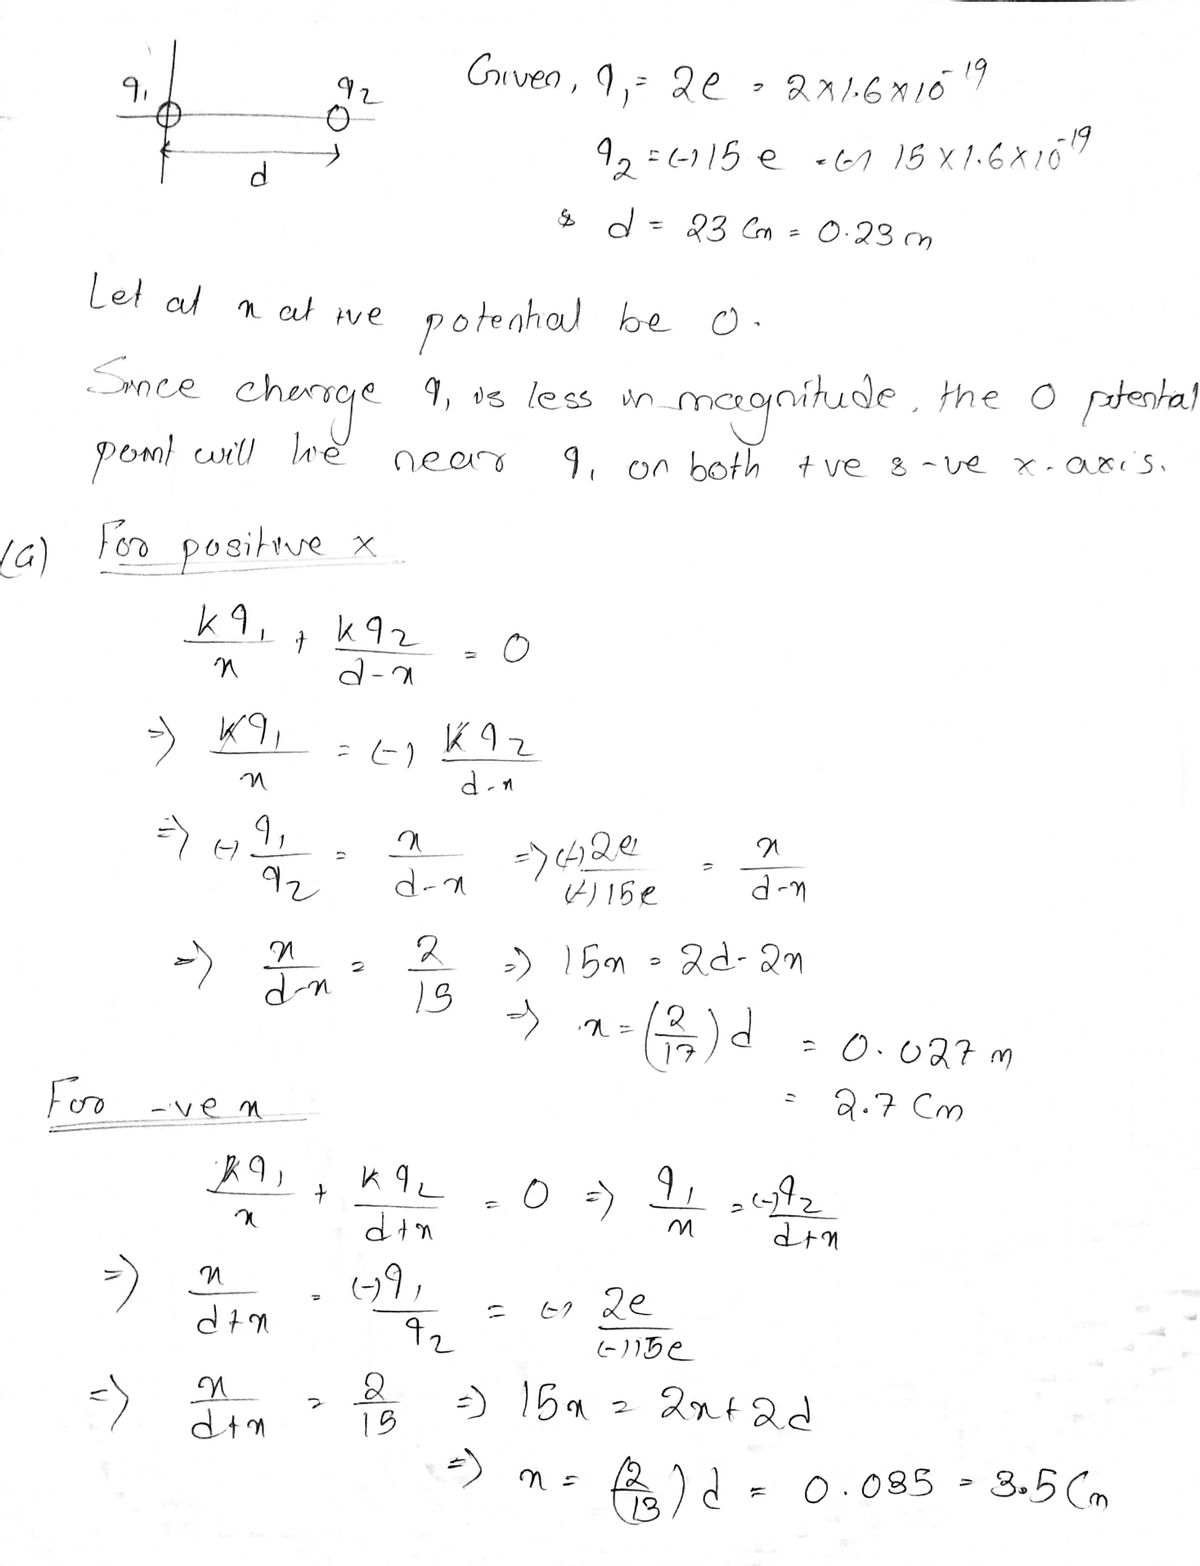 q₁ q₂ Given, q₁ = 2e = 2×1.6×10⁻¹⁹
q₂ = (-) 15 e = (-) 15 × 1.6×10⁻¹⁹
d
& d = 23 Cm = 0.23 m
Let at x at +ve potential be 0.
Since charge q₁ is less in magnitude, the 0 potental
point will lie near q₁ on both +ve & -ve x-axis.
(a) For positive x
kq₁/x + kq₂/(d-x) = 0
=> kq₁/x = (-) kq₂/(d-x)
=> (-) q₁/q₂ = x/(d-x) => (-)2e/(-)15e = x/(d-x)
=> x/(d-x) = 2/15 => 15x = 2d-2x
=> x = (2/17) d = 0.027 m
= 2.7 Cm
For -ve x
kq₁/x + kq₂/(d+x) = 0 => q₁/x = (-)q₂/(d+x)
=> x/(d+x) = (-)q₁/q₂ = (-) 2e/(-)15e
=> x/(d+x) = 2/15 => 15x = 2x+2d
=> x = (2/13) d = 0.035 = 3.5 Cm